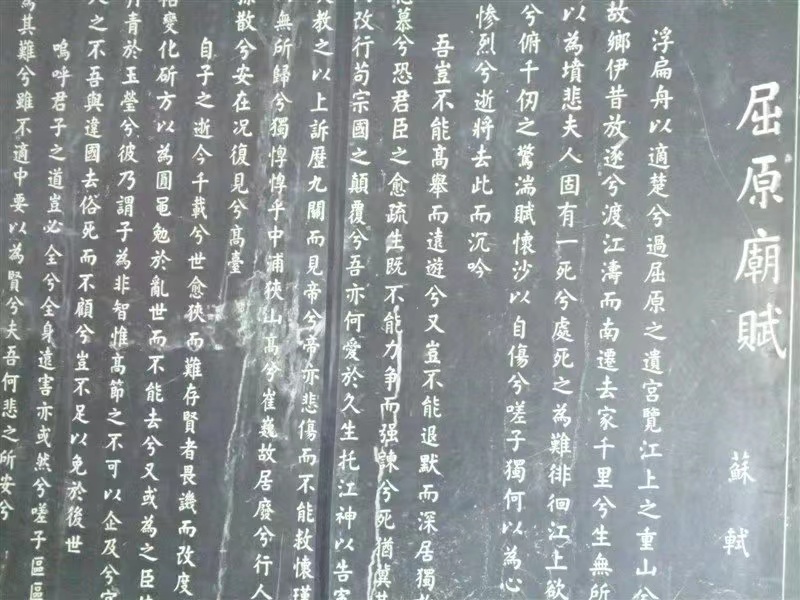 屈原廟賦
蘇軾
浮扁舟以適楚兮過屈原之遺宮覽江上之重山
故鄉伊昔放逐兮渡江濤而南遷去家千里兮生無所
以為墳悲夫人固有一死兮處死之為難徘徊江上欲
兮俯千仞之驚湍賦懷沙以自傷兮嗟子獨何以為心
慘烈兮逝將去此而沉吟
吾豈不能高舉而遠遊兮又豈不能退默而深居獨
慕兮恐君臣之愈疏生既不能力爭而强諫兮死猶冀其
改行苟宗國之顛覆兮吾亦何愛於久生托江神以告
教之以上訴歷九關而見帝兮帝亦悲傷而不能救懷瑾
無所歸兮獨惸惸乎中浦峽山高兮崔巍故居廢兮行人
散兮安在况復見兮高臺
自子之逝今千載兮世愈狹而難存賢者畏譏而改度
變化斫方以為圓黽勉於亂世而不能去兮又或為之臣
青於玉瑩兮彼乃謂子為非智惟高節之不可以企及兮
之不吾與違國去俗死而不顧兮豈不足以免於後世
嗚呼君子之道豈必全兮全身遠害亦或然兮嗟子區區
其難兮雖不適中要以為賢兮夫吾何悲之所安兮